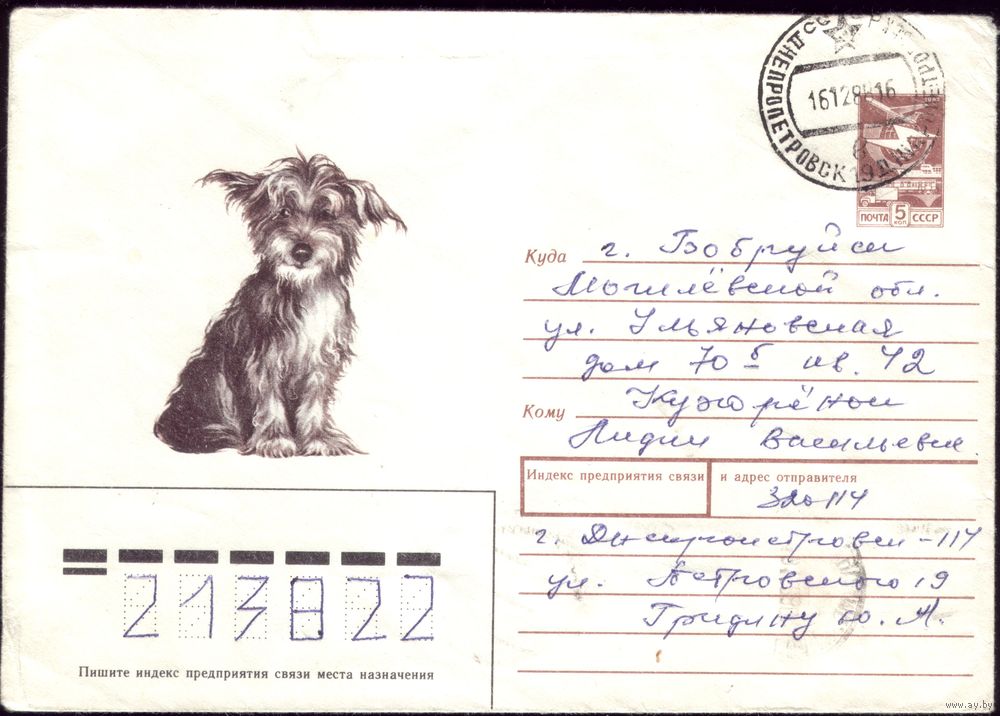 ДНЕПРОПЕТРОВСК 19
16128816
ПОЧТА 5 КОП СССР
Куда г. Бобруйск
Могилёвской обл.
ул. Ульяновская
дом 70 б кв. 42
Кому
Лидии Васильевне
Индекс предприятия связи и адрес отправителя
г. Днепропетровск-114
ул. Петровского 19
Гридину Ю. А.
213822
Пишите индекс предприятия связи места назначения
www.ay.by